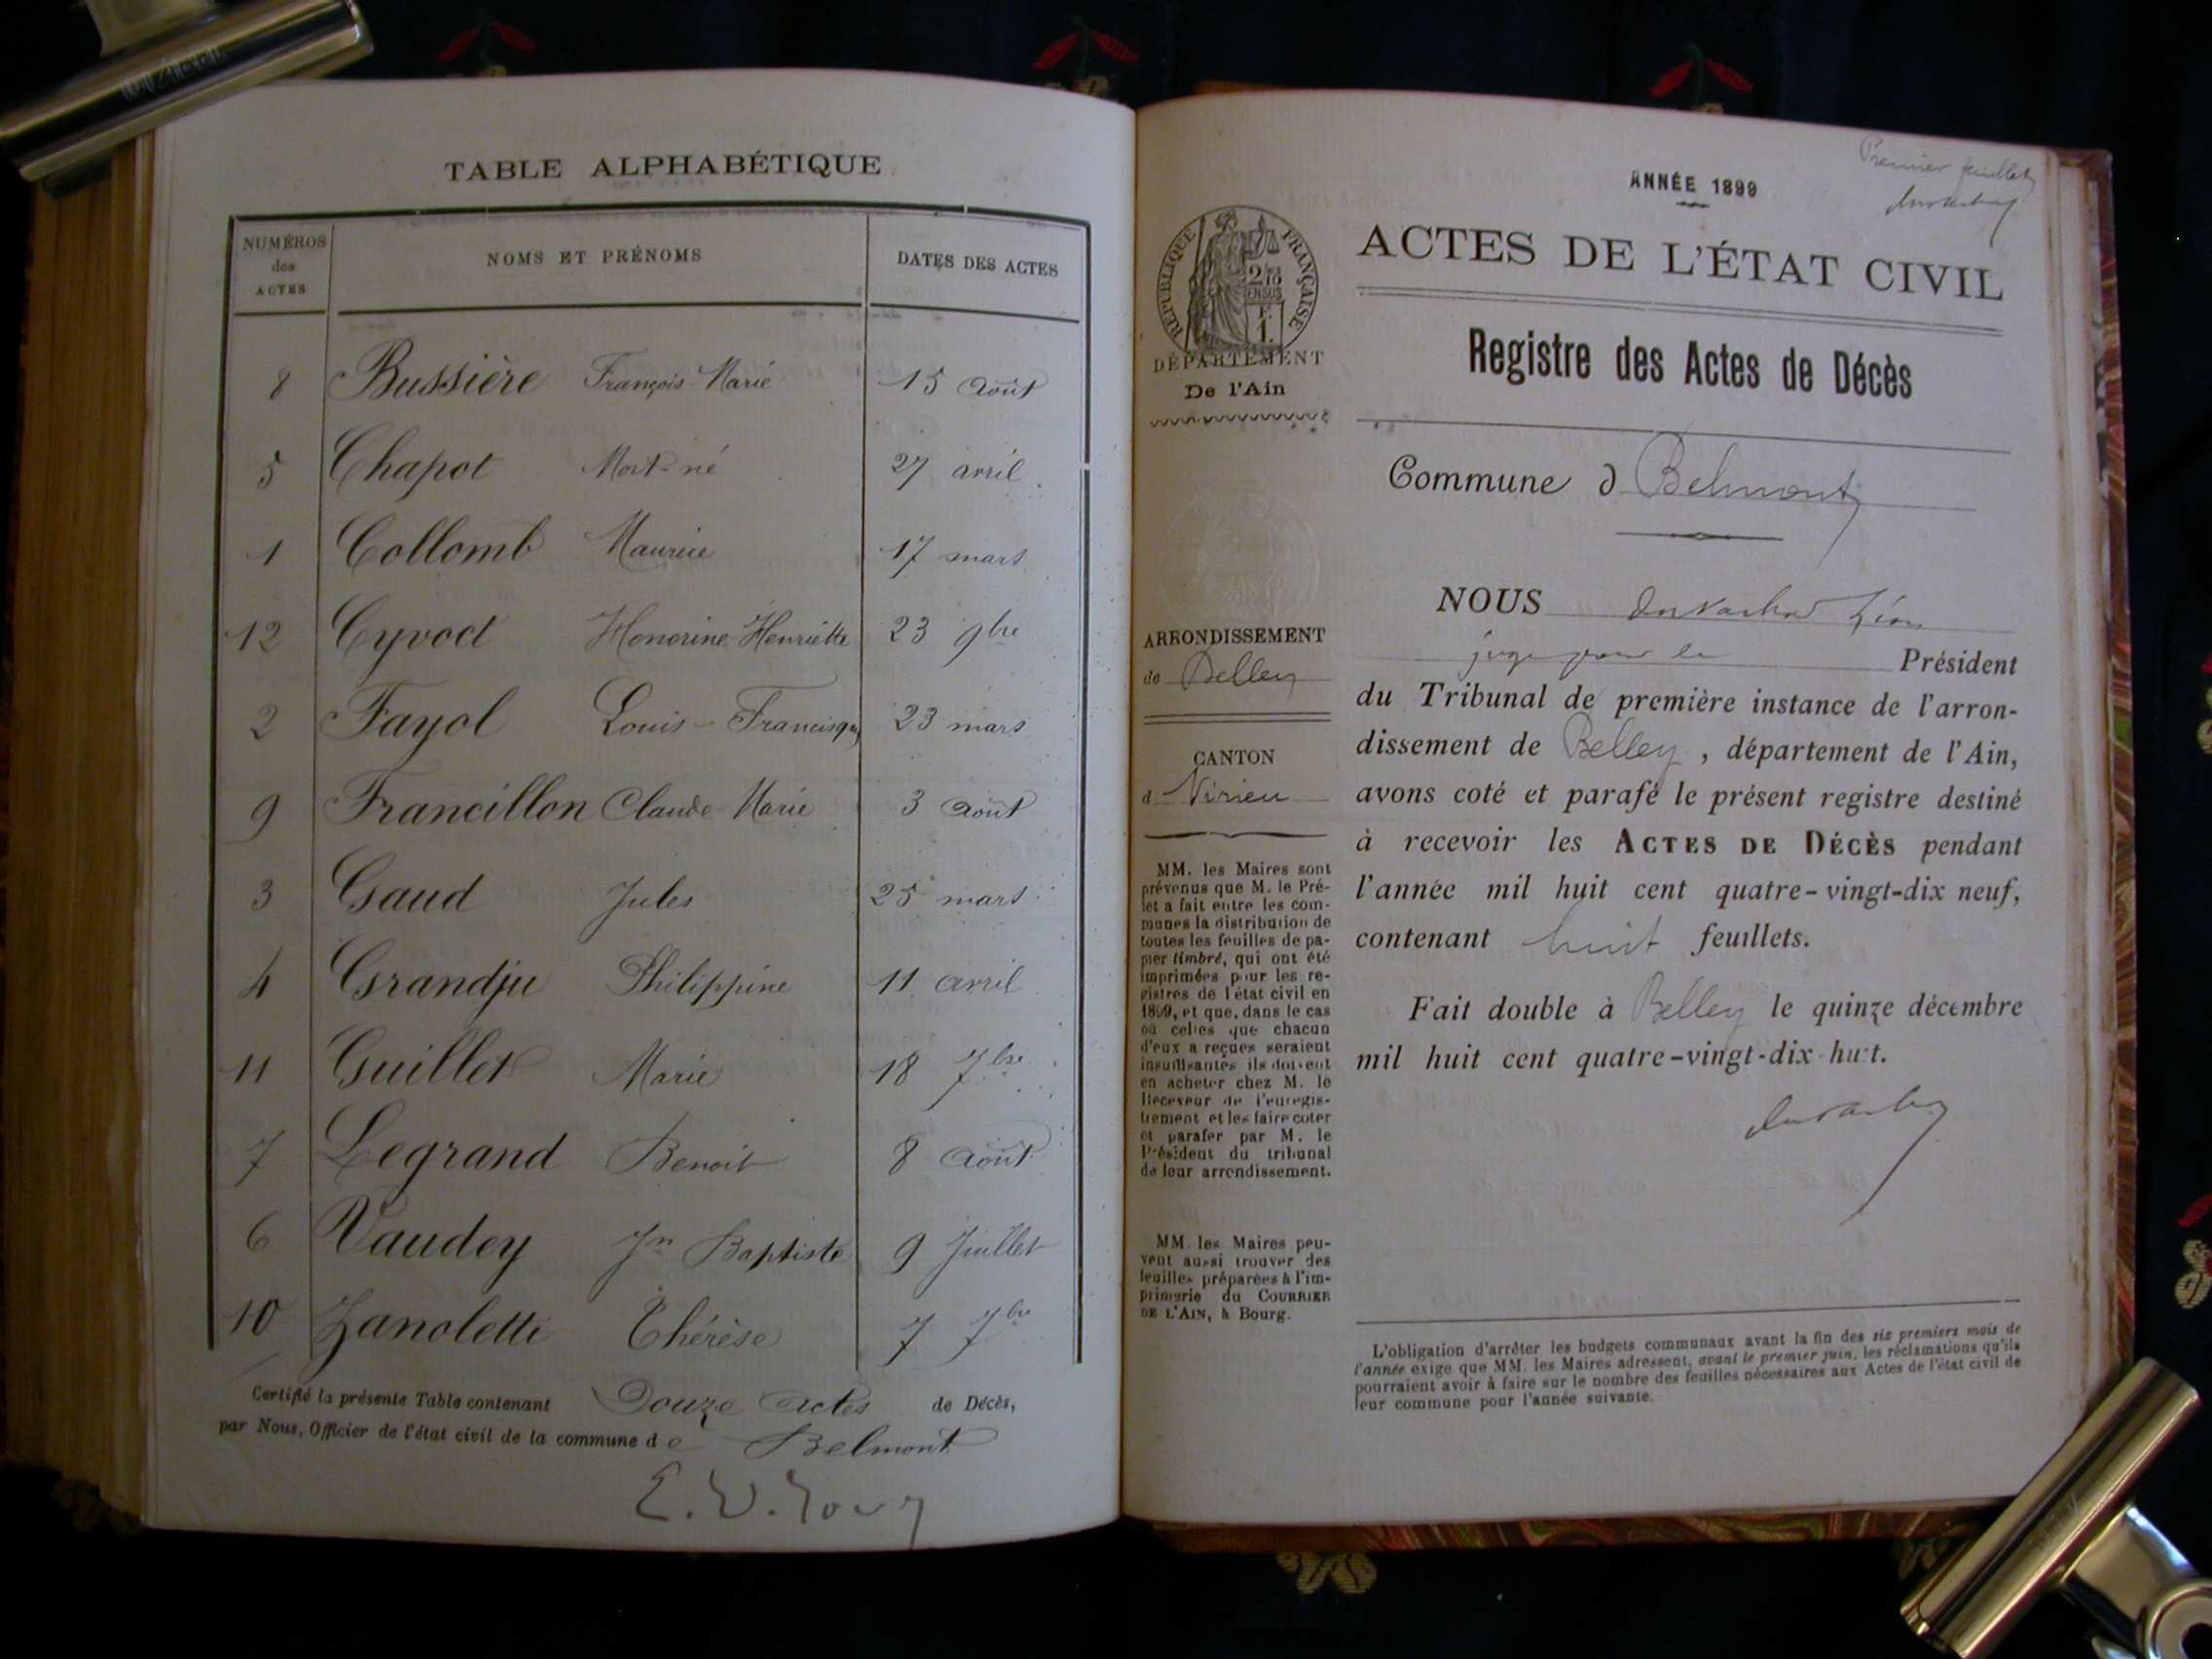 TABLE ALPHABÉTIQUE
NUMÉROS des ACTES NOMS ET PRÉNOMS DATES DES ACTES
8 Bussière François-Marie 15 Août
5 Chapot Mort-né 27 avril
1 Collomb Maurice 17 mars
12 Cyvoct Honorine Henriette 23 9bre
2 Fayol Louis-Francisque 23 mars
9 Francillon Claude-Marie 3 Août
3 Gaud Jules 25 mars
4 Grandju Philippine 11 avril
11 Guillet Marie 18 7bre
7 Legrand Benoit 8 Août
6 Vaudey Jn Baptiste 9 Juillet
10 Zanoletti Thérèse 7 7bre
Certifié la présente Table contenant Douze actes de Décès,
par Nous, Officier de l'état civil de la commune de Belmont
Premier feuillet
ANNÉE 1899
ACTES DE L'ÉTAT CIVIL
Registre des Actes de Décès
RÉPUBLIQUE FRANÇAISE
2/10 EN SUS
F. 1.
DÉPARTEMENT
De l'Ain
ARRONDISSEMENT
de Belley
CANTON
d Virieu
MM. les Maires sont
prévenus que M. le Pré-
fet a fait entre les com-
munes la distribution de
toutes les feuilles de pa-
pier timbré, qui ont été
imprimées pour les re-
gistres de l'état civil en
1899, et que, dans le cas
où celles que chacun
d'eux a reçues seraient
insuffisantes ils doivent
en acheter chez M. le
Receveur de l'enregis-
trement et les faire coter
et parafer par M. le
Président du tribunal
de leur arrondissement.
MM. les Maires peu-
vent aussi trouver des
feuilles préparées à l'im-
primerie du COURRIER
DE L'AIN, à Bourg.
Commune d Belmont
NOUS Léon
juge pour le Président
du Tribunal de première instance de l'arron-
dissement de Belley, département de l'Ain,
avons coté et parafé le présent registre destiné
à recevoir les ACTES DE DÉCÈS pendant
l'année mil huit cent quatre-vingt-dix neuf,
contenant huit feuillets.
Fait double à Belley le quinze décembre
mil huit cent quatre-vingt-dix-huit.
L'obligation d'arrêter les budgets communaux avant la fin des six premiers mois de
l'année exige que MM. les Maires adressent, avant le premier juin, les réclamations qu'ils
pourraient avoir à faire sur le nombre des feuilles nécessaires aux Actes de l'état civil de
leur commune pour l'année suivante.